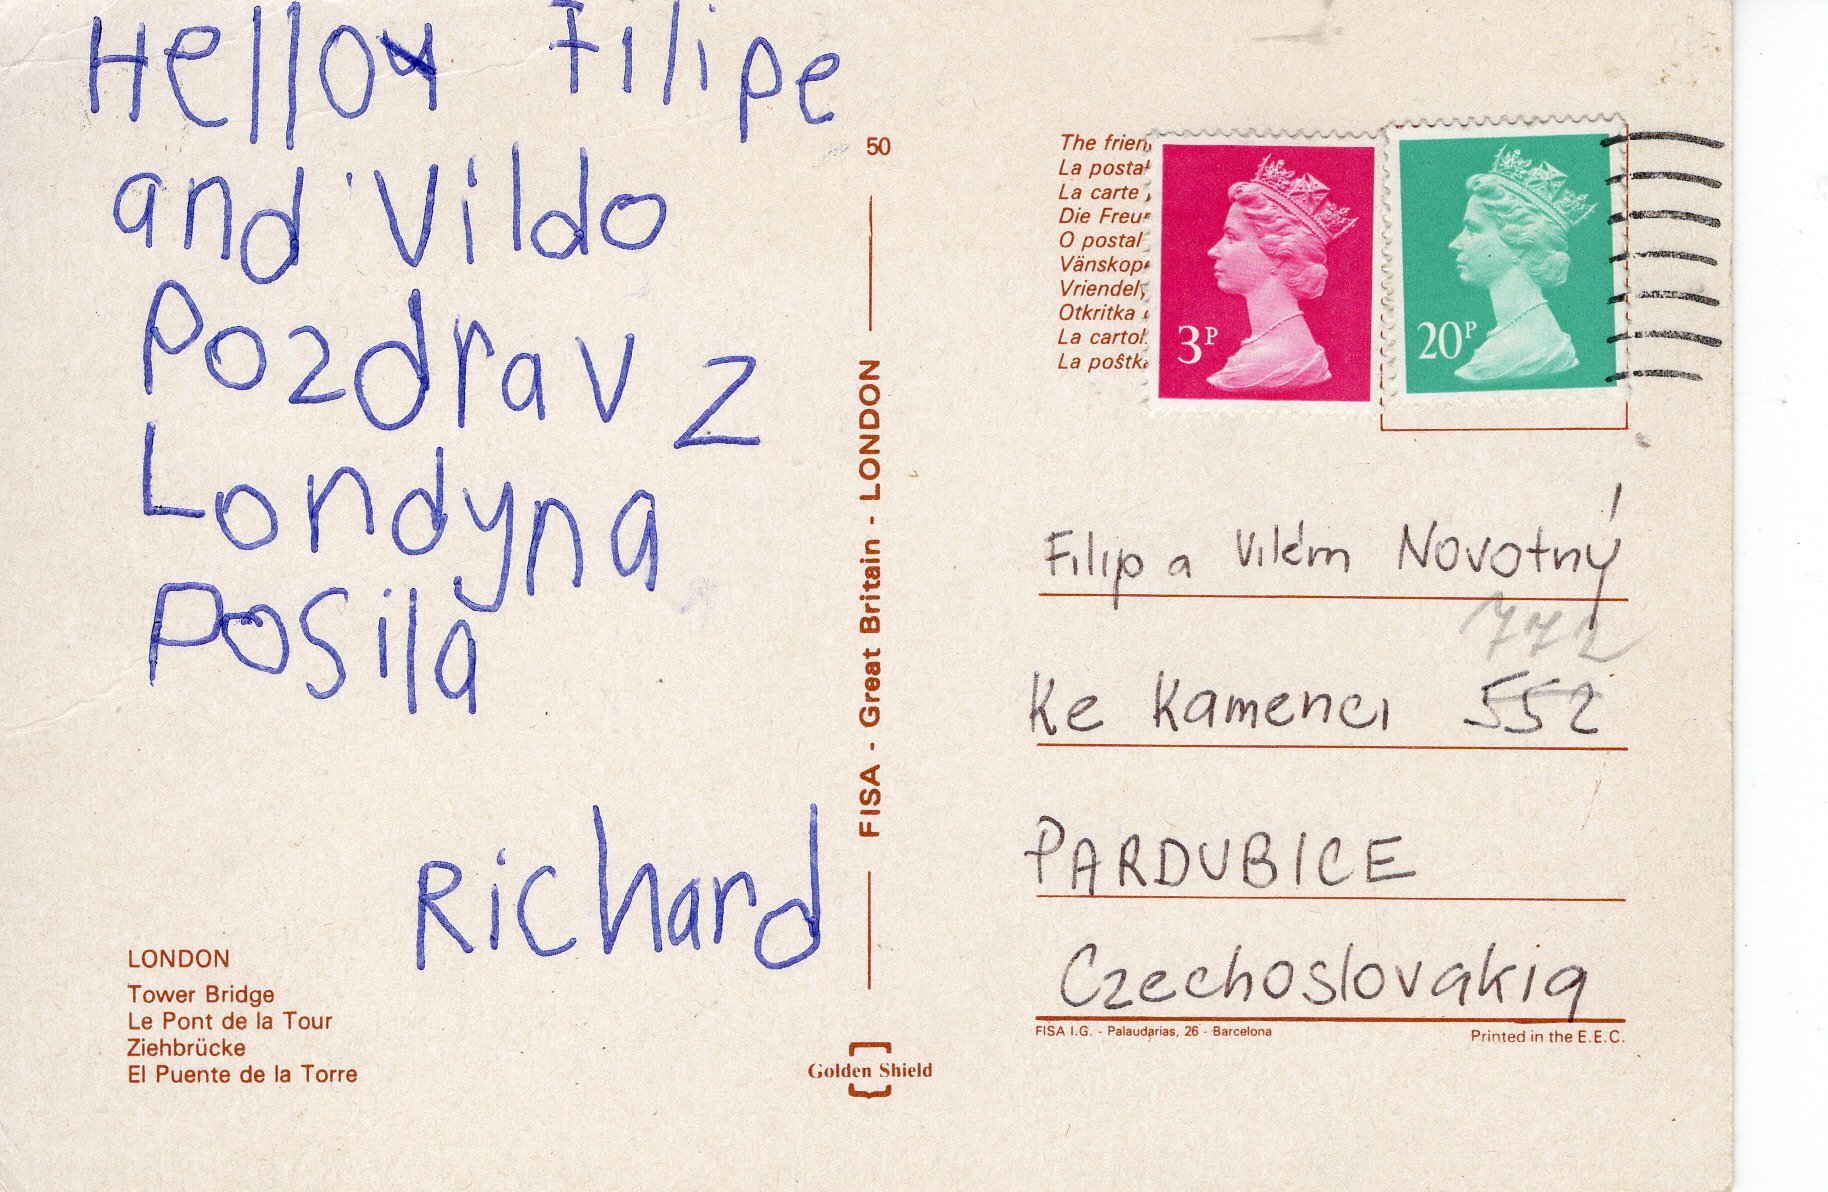 Hello Filipe
and Vildo
Pozdrav z
Londyna
Posila
Richard
LONDON
Tower Bridge
Le Pont de la Tour
Ziehbrücke
El Puente de la Torre
50
FISA - Great Britain - LONDON
Golden Shield
The frien
La posta
La carte
Die Freu
O postal
Vänskop
Vriendel
Otkritka
La cartol
La poŝtk
3P
20P
Filip a Vilém Novotný
772
Ke Kamenci 552
PARDUBICE
Czechoslovakia
FISA I.G. - Palaudarias, 26 - Barcelona
Printed in the E.E.C.